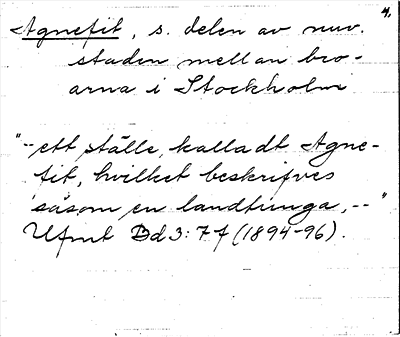 4.
Agnefit, s. delen av nuv.
staden mellan bro-
arna i Stockholm
"-- ett ställe, kalladt Agne-
fit, hvilket beskrifves
såsom en landtunga, --"
Ufmt Bd 3: 77 (1894-96).